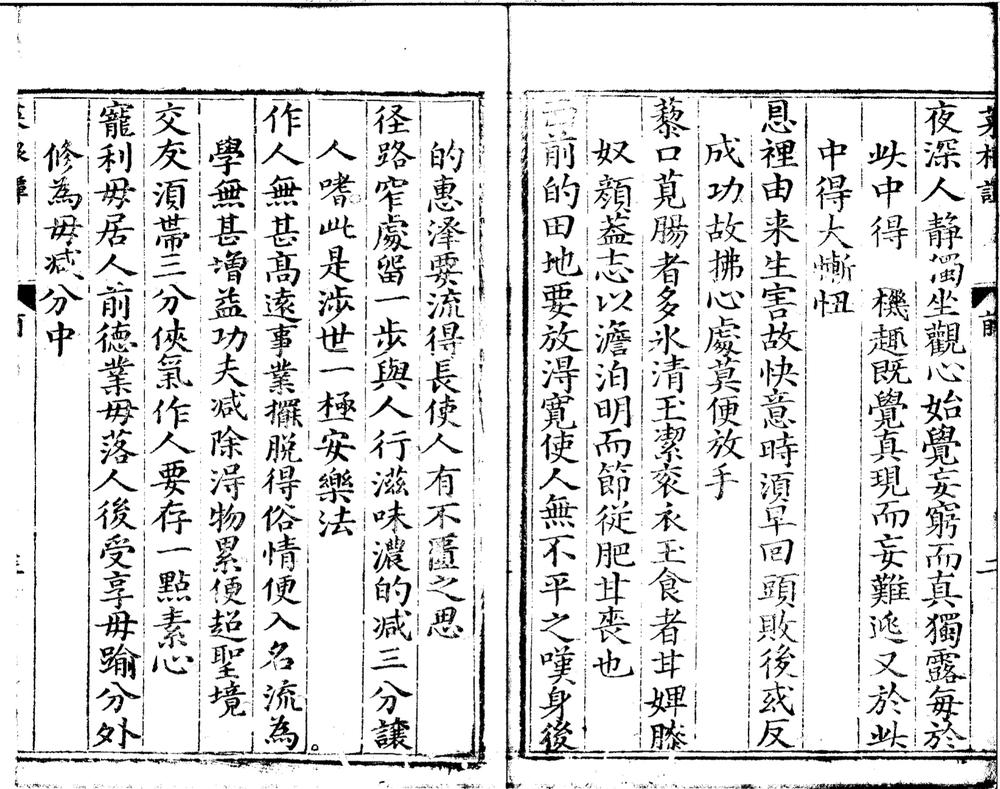 菜根譚 前 二
夜深人静獨坐觀心始覺妄窮而真獨露每於
此中得 機趣既覺真現而妄難逃又於此
中得大慚忸
恩裡由来生害故快意時須早回頭敗後或反
成功故拂心處莫便放手
藜口莧腸者多氷清玉潔衮衣玉食者甘婢膝
奴顔葢志以澹泊明而節從肥甘喪也
面前的田地要放淂寛使人無不平之嘆身後
的惠泽要流得長使人有不匱之思
径路窄處留一步與人行滋味濃的减三分讓
人嗜此是涉世一極安樂法
作人無甚髙遠事業擺脱得俗情便入名流為
學無甚增益功夫减除淂物累便超聖境
交友須帯三分俠氣作人要存一點素心
寵利毋居人前德業毋落人後受享毋踰分外
修為毋减分中